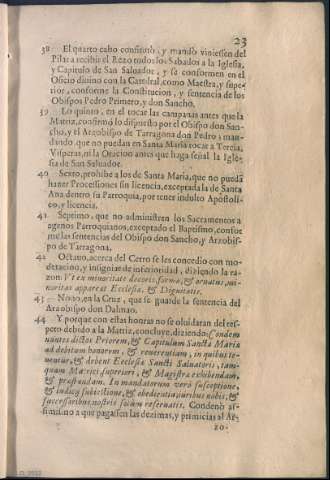 23
38 El quarto cabo constituyò, y mandò viniessen del
Pilar a recibir el Rezo todos los Sabados a la Iglesia,
y Capitulo de San Salvador, y se conformen en el
Oficio divino con la Catedral, como Maestra, y supe-
rior, conforme la Constitucion, y sentencia de los
Obispos Pedro Primero, y don Sancho.
39 Lo quinto, en el tocar las campanas antes que la
Matriz, confirmò lo dispuesto por el Obispo don San-
cho, y el Arzobispo de Tarragona don Pedro; man-
dando, que no puedan en Santa Maria tocar a Tercia,
Visperas, ni la Oracion antes que haga señal la Igle-
sia de San Salvador.
40 Sexto, prohibe a los de Santa Maria, que no puedã
hazer Processiones sin licencia, exceptada la de Santa
Ana dentro su Parroquia, por tener indulto Apostoli-
co, y licencia.
41 Septimo, que no administren los Sacramentos a
agenos Parroquianos, exceptado el Baptismo, confor-
me las sentencias del Obispo don Sancho, y Arzobis-
po de Tarragona.
42 Octavo, acerca del Cetro se les concediò con mo-
deracion, y insignias de inferioridad, diziendo la ra-
zon. Vt ex minoritate decoris, forma, & ornatus, mi-
noritas appareat Ecclesiæ, & Dignitatis.
43 Nono, en la Cruz, que se guarde la sentencia del
Arzobispo don Dalmao.
44 Y porque con estas honras no se olvidaran del res-
peto debido a la Matriz, concluye, diziendo: Condem
nantes dictos Priorem, & Capitulum Sanctæ Mariæ
ad debitam honorem, & reverentiam, in quibus te-
nentur, & debent Ecclesiæ Sancti Salvatoris, tam-
quam Matrici superiori, & Magistræ exhibendam,
& præstandam. In mandatorum verò susceptione,
& iudicij subiectione, & obedientia, iuribus nobis, &
successoribus nostris semper reservatis. Condenò as-
simismo a que pagassen las dezimas, y primicias al Ar-
zo-